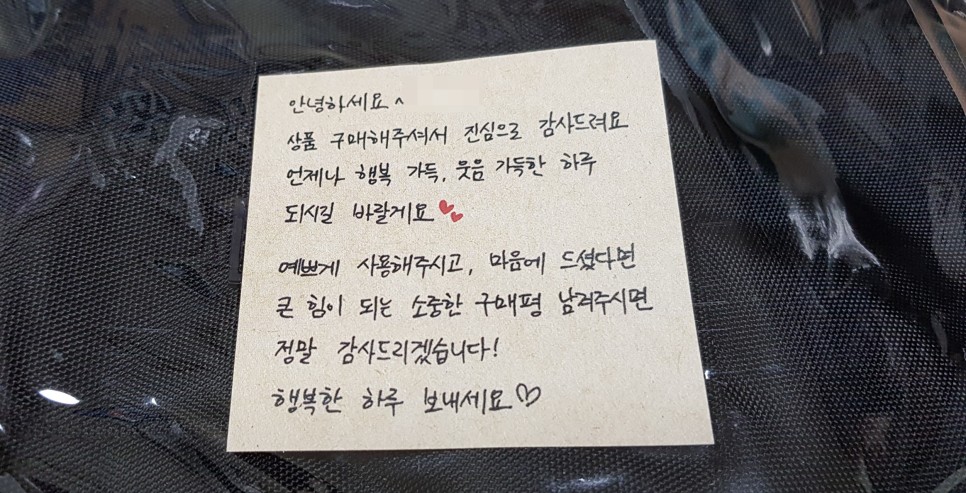 안녕하세요^
상품 구매해주셔서 진심으로 감사드려요
언제나 행복 가득, 웃음 가득한 하루
되시길 바랄게요
예쁘게 사용해주시고, 마음에 드셨다면
큰 힘이 되는 소중한 구매평 남겨주시면
정말 감사드리겠습니다!
행복한 하루 보내세요♡